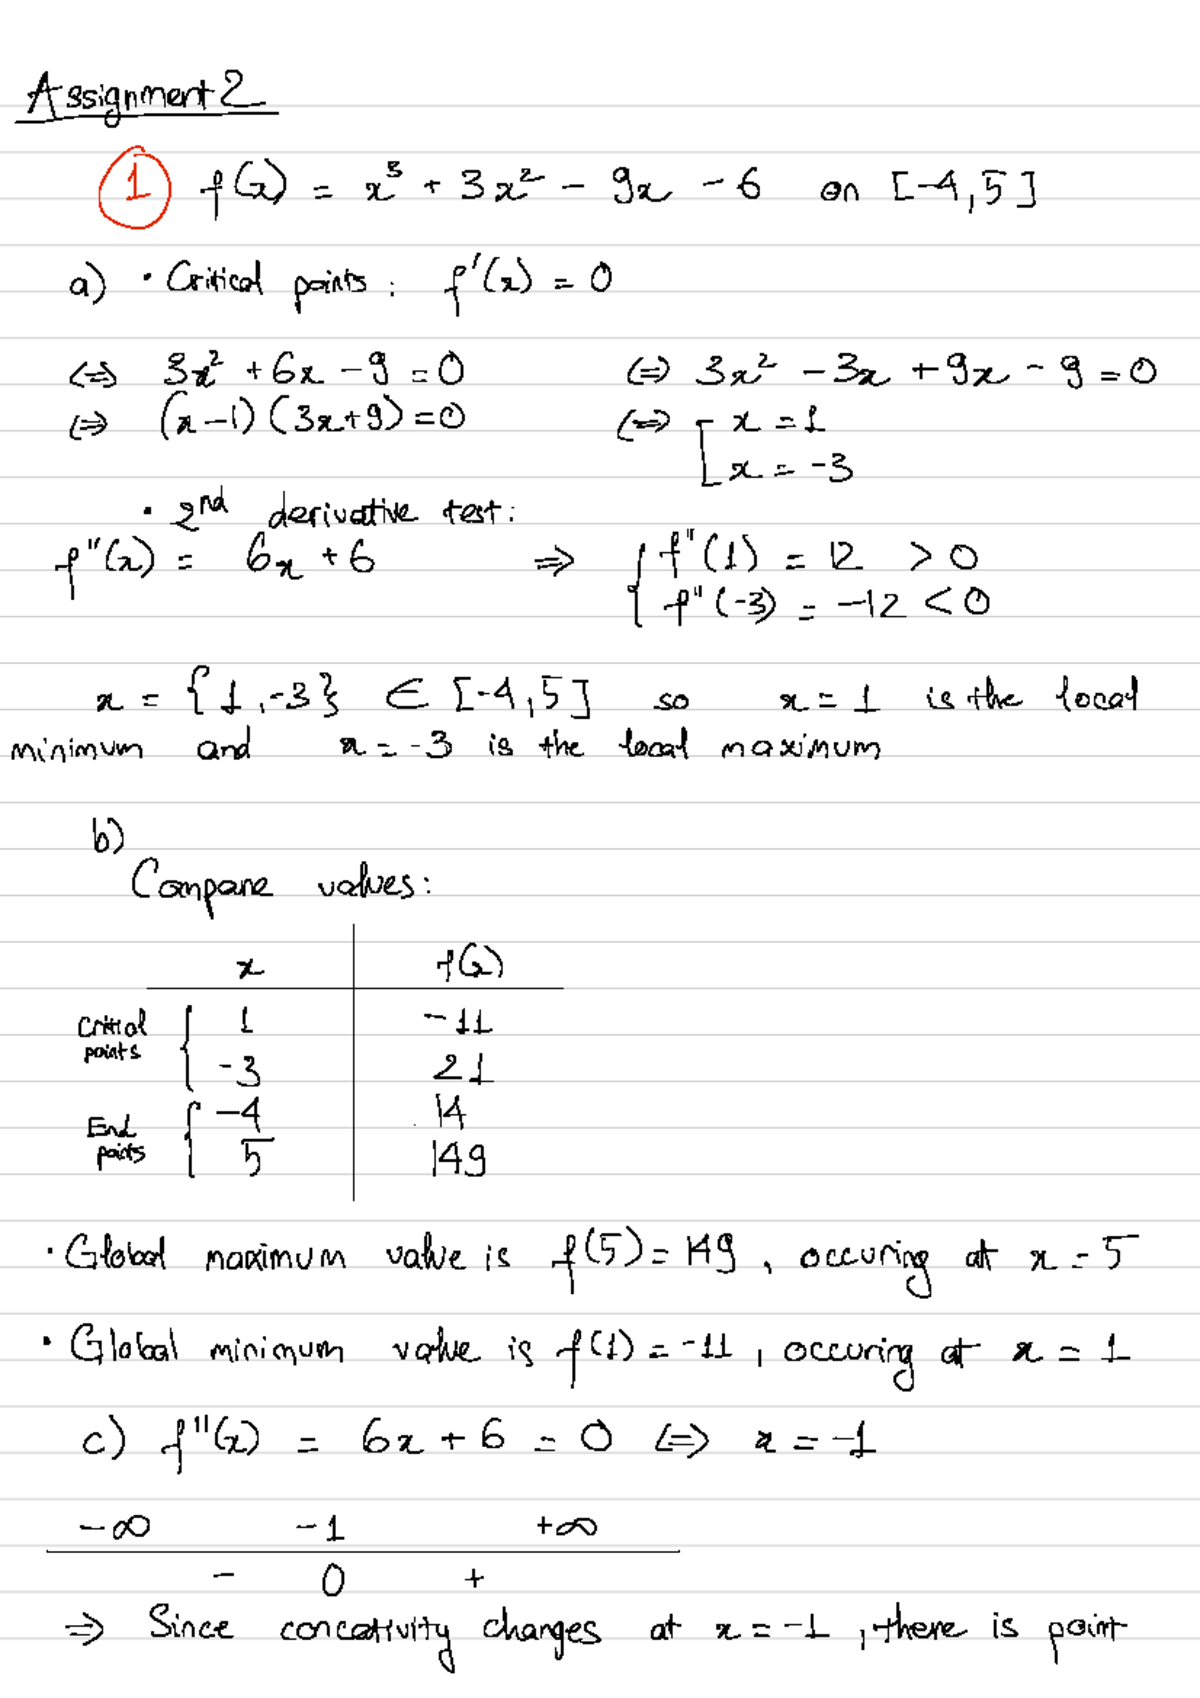 Assignment 2
1 f(x) = x³ + 3x² - 9x - 6 on [-4,5]
a) • Critical points: f'(x) = 0
⇔ 3x² + 6x - 9 = 0 ⇔ 3x² - 3x + 9x - 9 = 0
⇔ (x-1)(3x+9) = 0 ⇔ [ x = 1
x = -3
• 2nd derivative test:
f"(x) = 6x + 6 ⇒ { f"(1) = 12 > 0
f"(-3) = -12 < 0
x = {1,-3} ∈ [-4,5] so x = 1 is the local
minimum and x = -3 is the local maximum
b)
Compare values:
x f(x)
Critical points { 1 -11
-3 21
End points { -4 14
5 149
• Global maximum value is f(5) = 149, occuring at x = 5
• Global minimum value is f(1) = -11, occuring at x = 1
c) f"(x) = 6x + 6 = 0 ⇔ x = -1
-∞ -1 +∞
- 0 +
⇒ Since concativity changes at x = -1, there is point